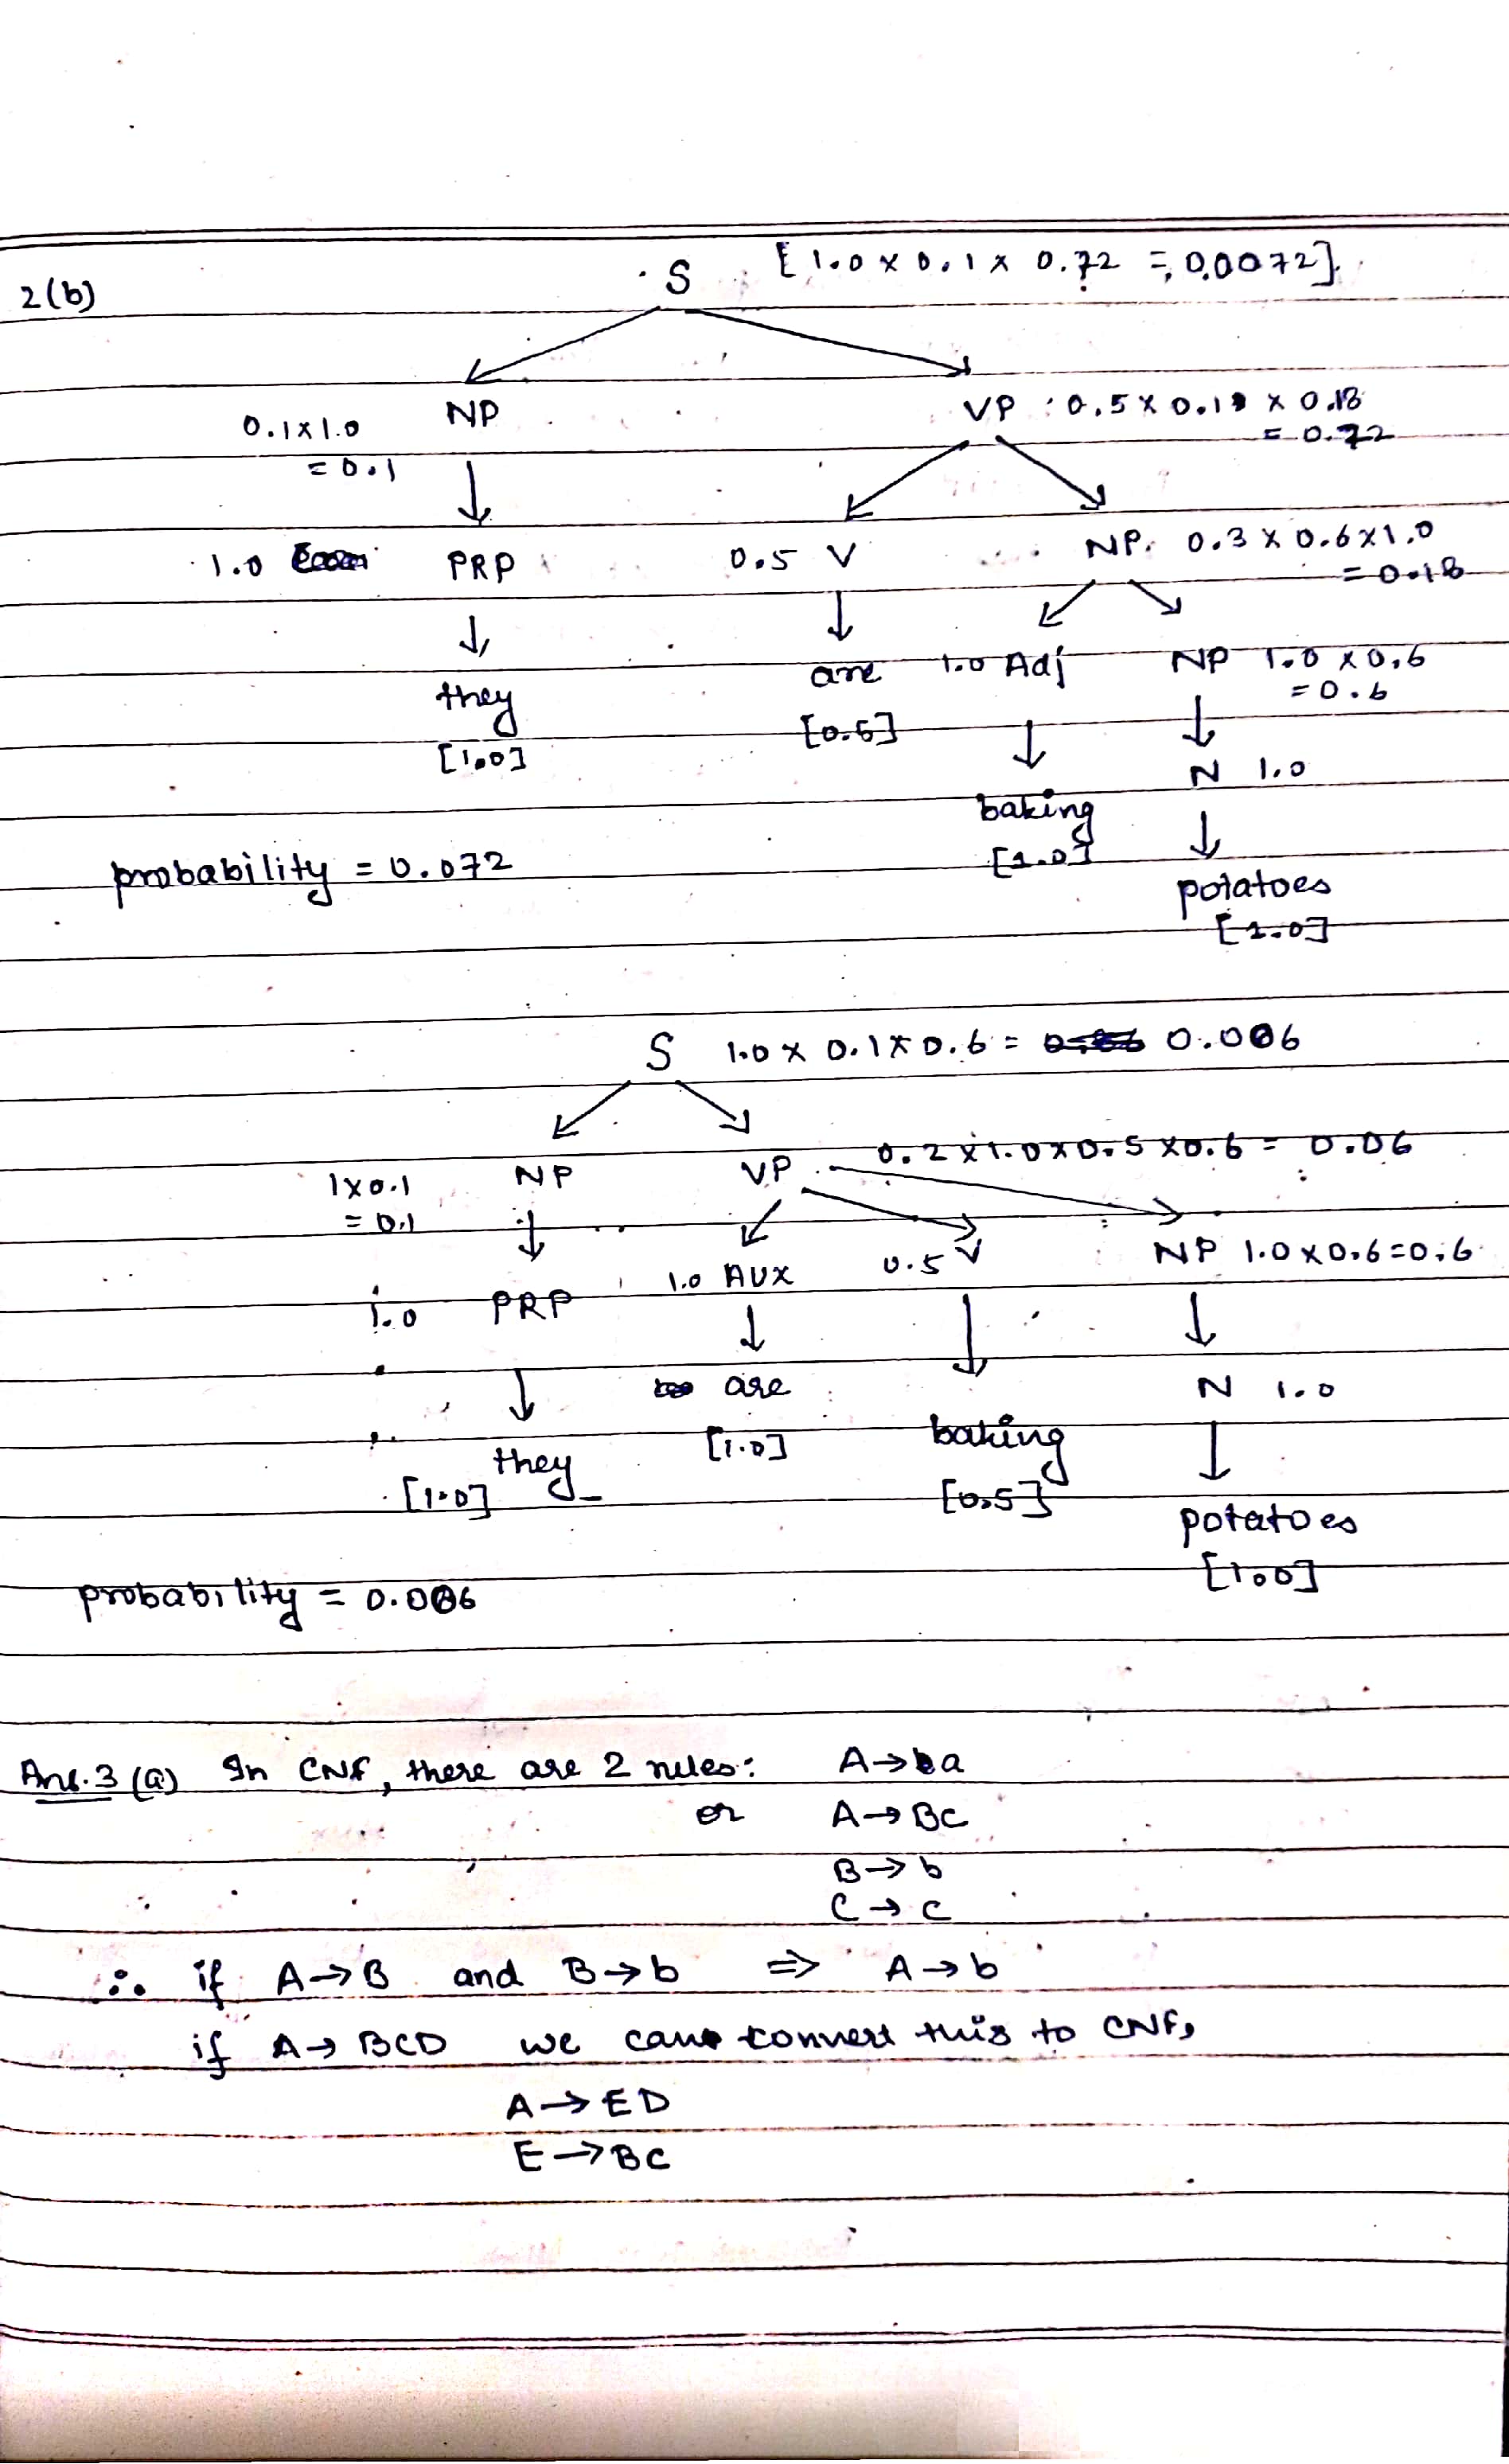 2(b)
S [1.0 x 0.1 x 0.72 = 0.0072]
NP
0.1x1.0
= 0.1
VP : 0.5 x 0.1 x 0.18
= 0.72
1.0 PRP
0.5 V
NP. 0.3 x 0.6x1.0
= 0.18
they
[1.0]
are
[0.5]
1.0 Adj
NP 1.0 x 0.6
= 0.6
N 1.0
baking
[1.0]
potatoes
[1.0]
probability = 0.072
S 1.0 x 0.1 x 0.6 = 0.006
NP
1x0.1
= 0.1
VP 0.2 x 1.0 x 0.5 x 0.6 = 0.06
1.0 PRP
1.0 AUX
0.5 V
NP 1.0 x 0.6 = 0.6
they
[1.0]
are
[1.0]
baking
[0.5]
N 1.0
potatoes
[1.0]
probability = 0.006
Ans. 3 (a) In CNF, there are 2 rules: A → a
or A → BC
B → b
C → c
∴ if A → B and B → b ⇒ A → b
if A → BCD we can convert this to CNF,
A → ED
E → BC